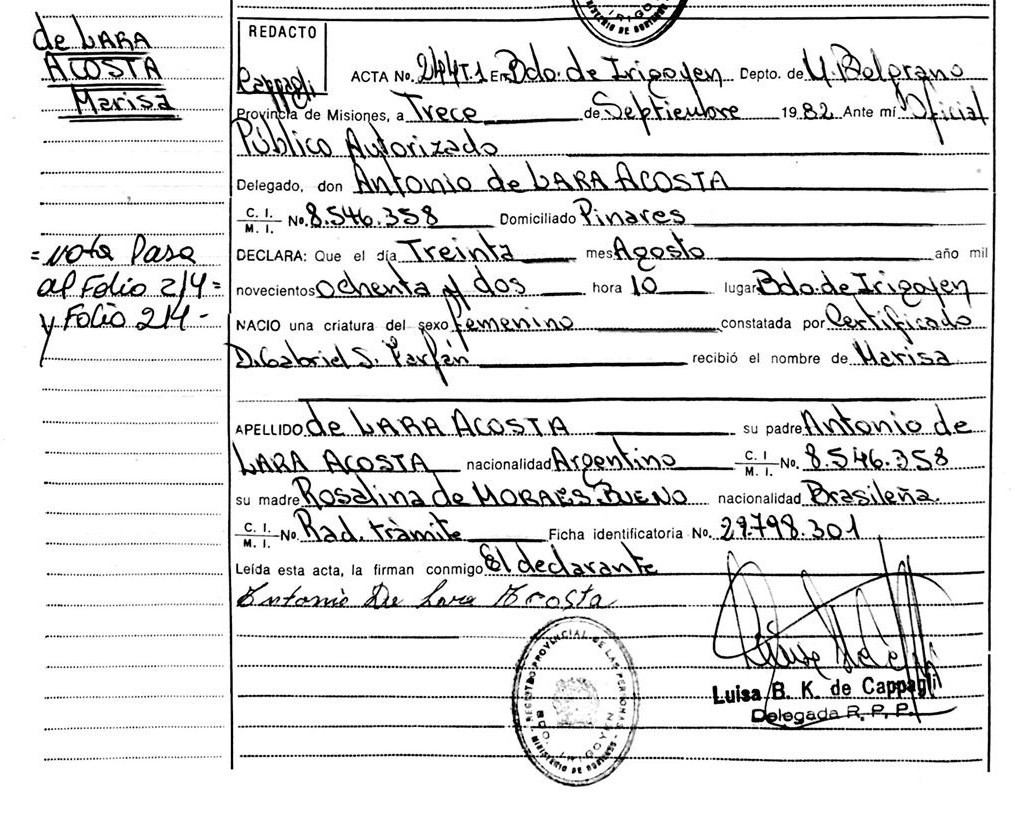 de LARA
ACOSTA
Marisa
= Nota Pasa
al Folio 214 =
y Folio 214 -
REDACTO
Cappagli
ACTA No. 244T.1 En Bdo. de Irigoyen Depto. de M. Belgrano
Provincia de Misiones, a Trece de Septiembre 1982 Ante mí Oficial
Público Autorizado
Delegado, don Antonio de LARA ACOSTA
C. I.
M. I. No. 8.546.358 Domiciliado Pinares
DECLARA: Que el día Treinta mes Agosto año mil
novecientos ochenta y dos hora 10 lugar Bdo. de Irigoyen
NACIO una criatura del sexo femenino constatada por Certificado
D. Gabriel S. Farfán recibió el nombre de Marisa
APELLIDO de LARA ACOSTA su padre Antonio de
LARA ACOSTA nacionalidad Argentino C. I. M. I. No. 8.546.358
su madre Rosalina de MORAES BUENO nacionalidad Brasileña.
C. I. M. I. No. Rad. tràmite Ficha identificatoria No. 29.798.301
Leída esta acta, la firman conmigo El declarante
Antonio De Lara Acosta
Luisa B. K. de Cappagli
Delegada R. P. P.
REGISTRO PROVINCIAL DE LAS PERSONAS
BDO. IRIGOYEN
MINISTERIO DE GOBIERNO